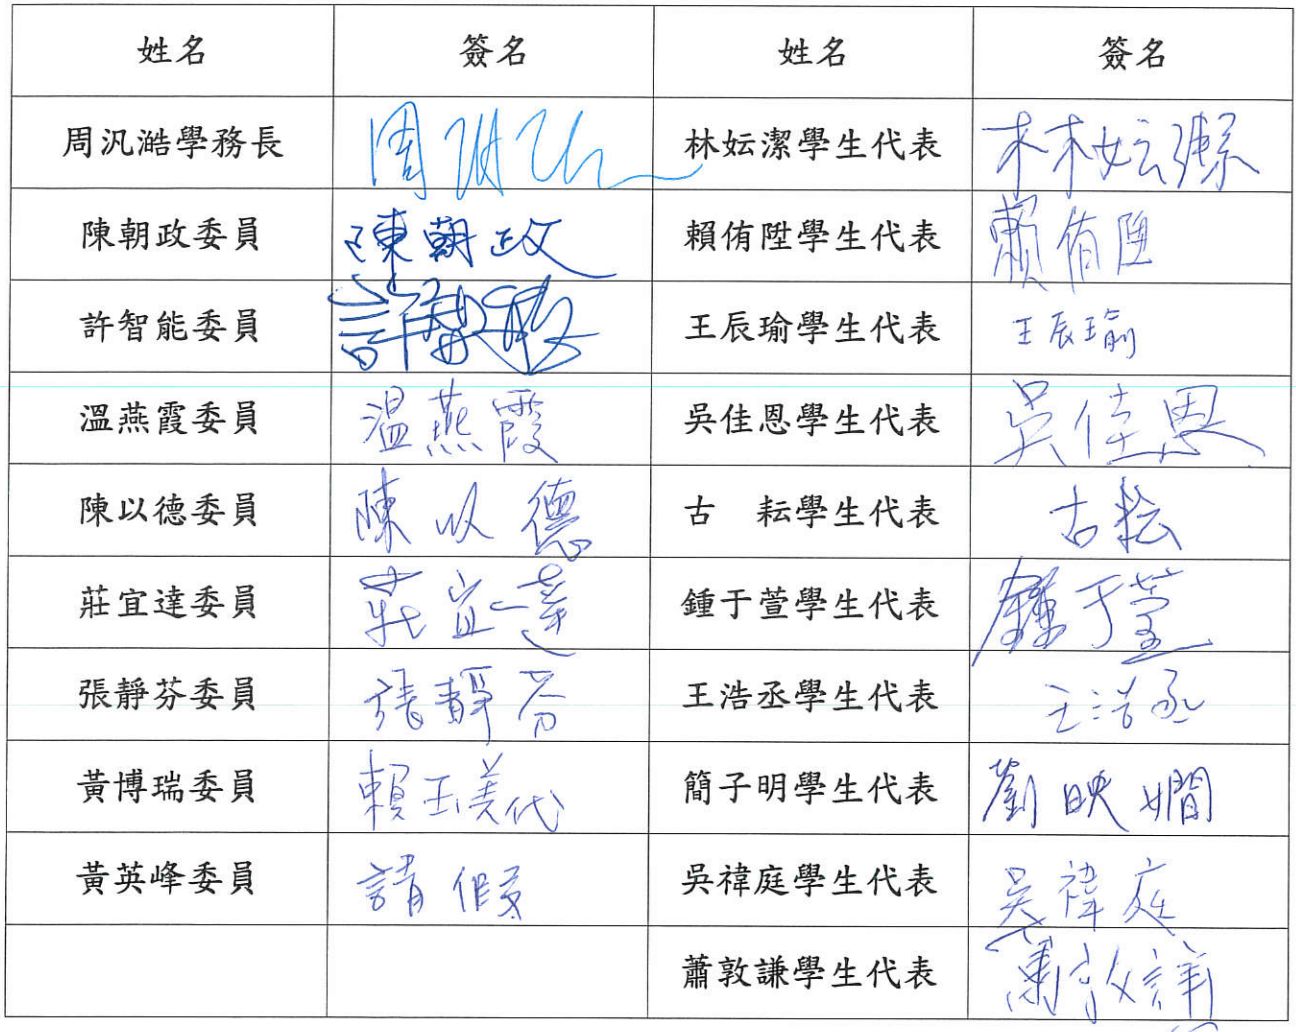 姓名 簽名 姓名 簽名
周汎澔學務長 周汎澔 林妘潔學生代表 林妘潔
陳朝政委員 陳朝政 賴侑陞學生代表 賴侑陞
許智能委員 許智能 王辰瑜學生代表 王辰瑜
溫燕霞委員 溫燕霞 吳佳恩學生代表 吳佳恩
陳以德委員 陳以德 古 耘學生代表 古耘
莊宜達委員 莊宜達 鍾于萱學生代表 鍾于萱
張靜芬委員 張靜芬 王浩丞學生代表 王浩丞
黃博瑞委員 賴玉美代 簡子明學生代表 劉映嫺
黃英峰委員 請假 吳禕庭學生代表 吳禕庭
蕭敦謙學生代表 蕭敦謙